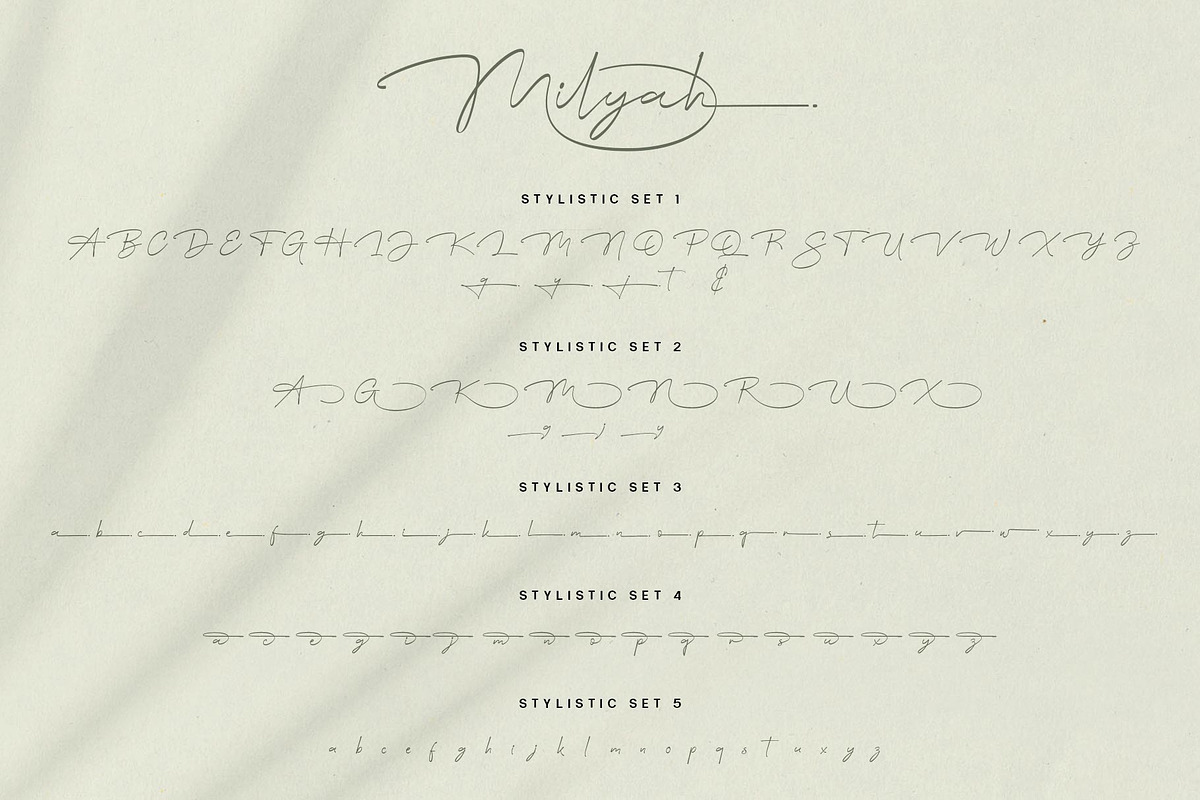 Milyah
STYLISTIC SET 1
A B C D E F G H I J K L M N O P Q R S T U V W X Y Z
g y j T &
STYLISTIC SET 2
A G K M N R U X
g j y
STYLISTIC SET 3
a b c d e f g h i j k l m n o p q r s t u v w x y z
STYLISTIC SET 4
a c e g i j m n o p q r s u x y z
STYLISTIC SET 5
a b c e f g h i j k l m n o p q s t u x y z